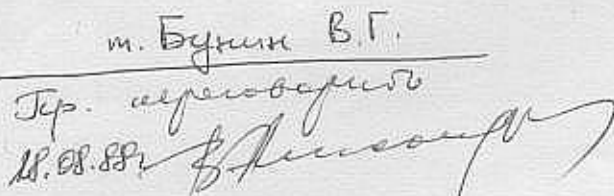 т. Бунин В.Г.
Пр. переговорить
18.08.88г.